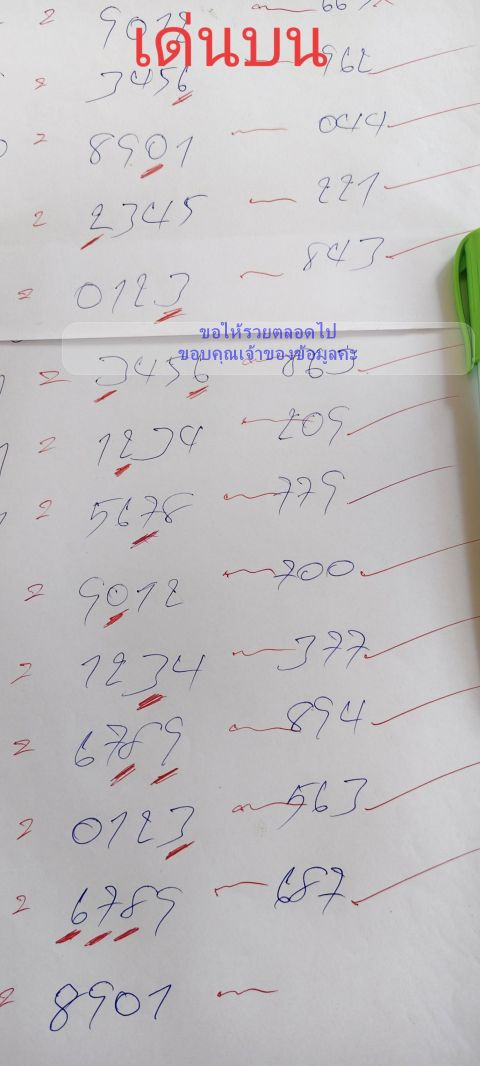 เด่นบน
= 9012 — 669
= 3456 — 962
= 8901 — 044
= 2345 — 221
= 0123 — 843
ขอให้รวยตลอดไป
ขอบคุณเจ้าของข้อมูลค่ะ
= 3456 — 863
= 1234 — 209
= 5678 — 779
= 9012 — 700
= 1234 — 377
= 6789 — 894
= 0123 — 563
= 6789 — 687
= 8901 —